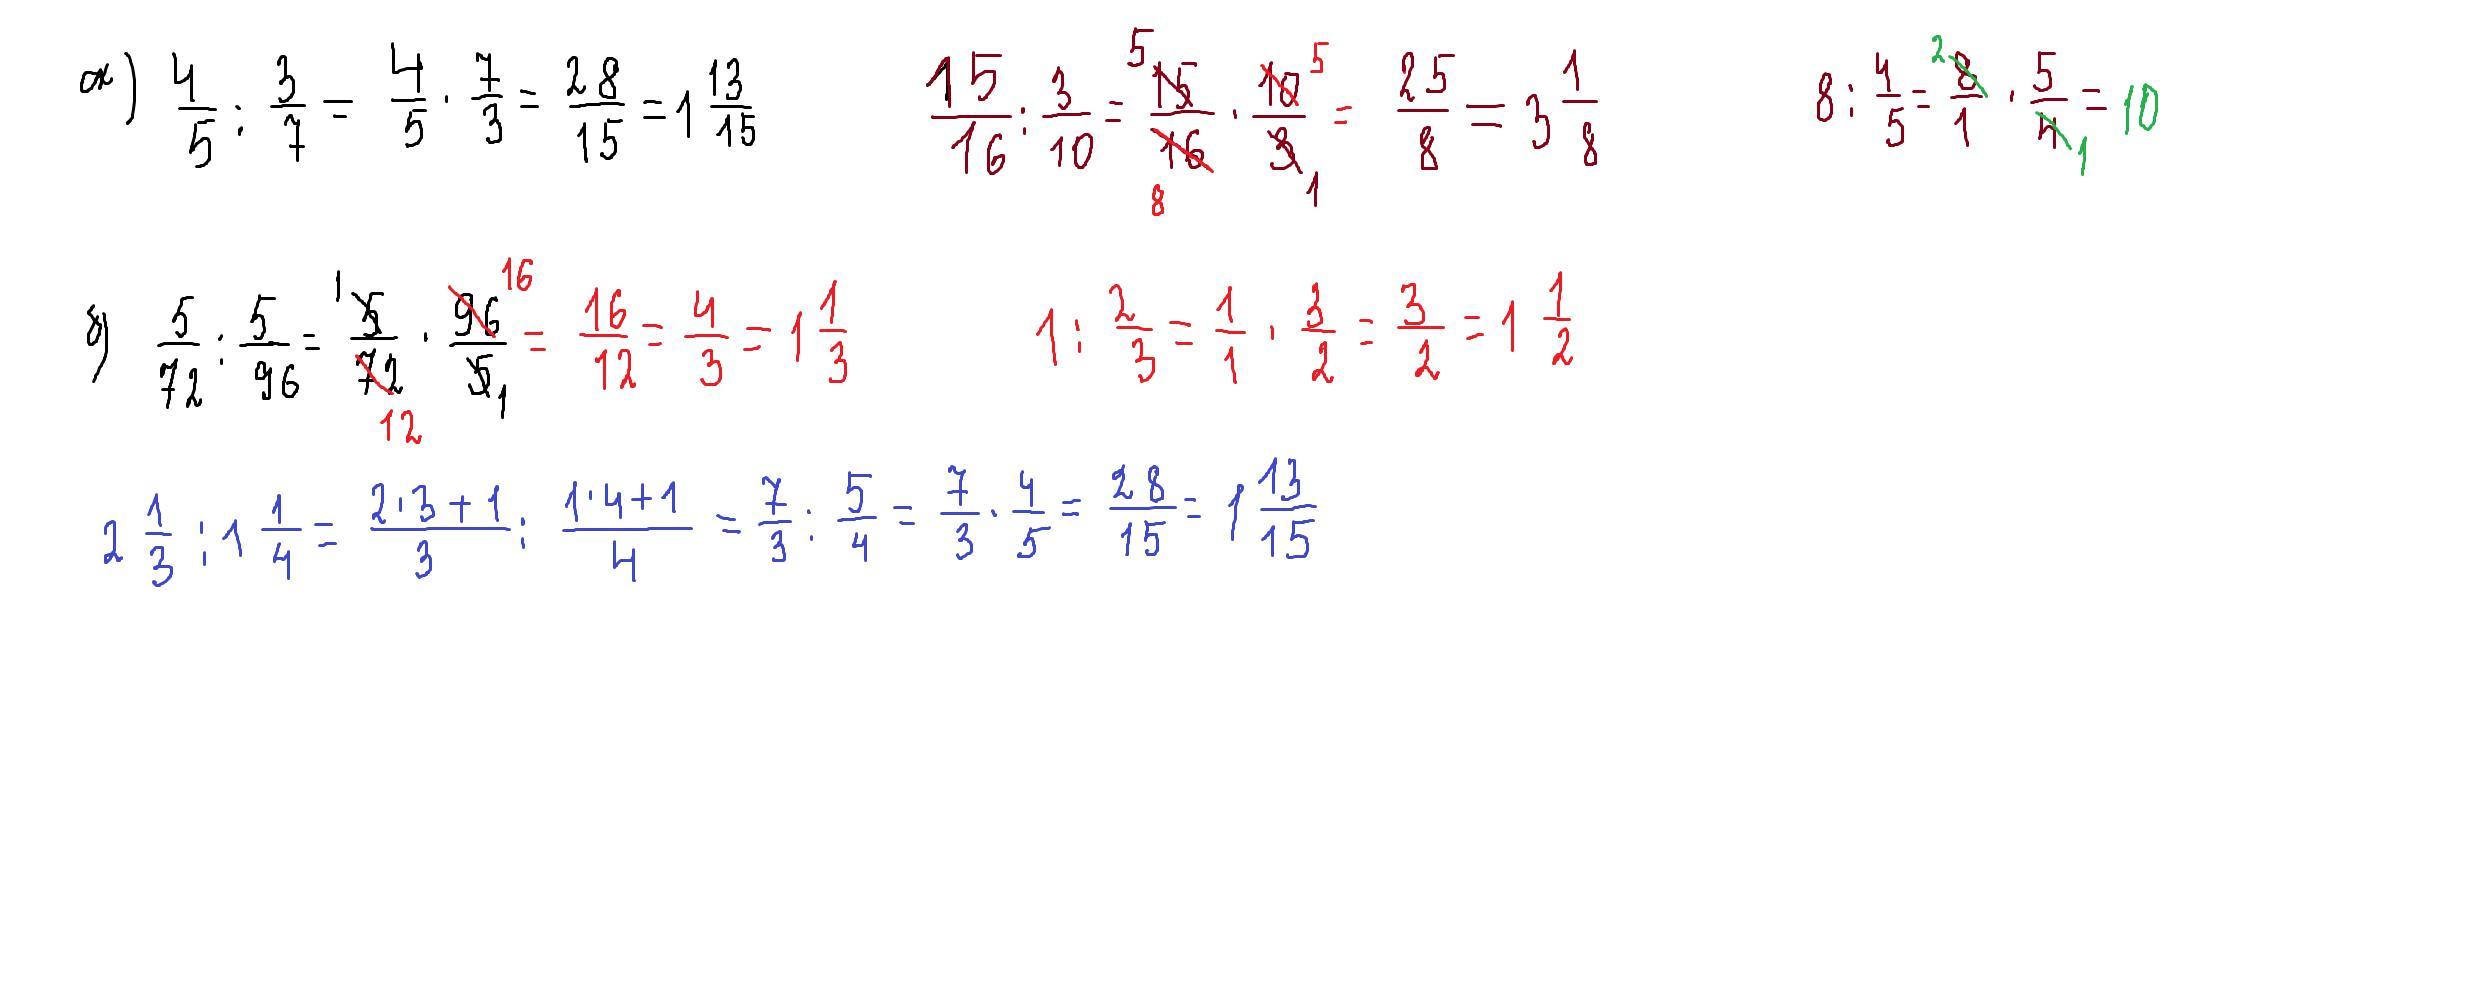 а) 4/5 : 3/7 = 4/5 · 7/3 = 28/15 = 1 13/15 15/16 : 3/10 = 5 15/16 8 · 10/3 5 1 = 25/8 = 3 1/8 8 : 4/5 = 2 8/1 · 5/4 1 = 10
б) 5/72 : 5/96 = 1 5/72 12 · 96/5 16 1 = 16/12 = 4/3 = 1 1/3 1 : 2/3 = 1/1 · 3/2 = 3/2 = 1 1/2
2 1/3 : 1 1/4 = 2·3+1/3 : 1·4+1/4 = 7/3 : 5/4 = 7/3 · 4/5 = 28/15 = 1 13/15